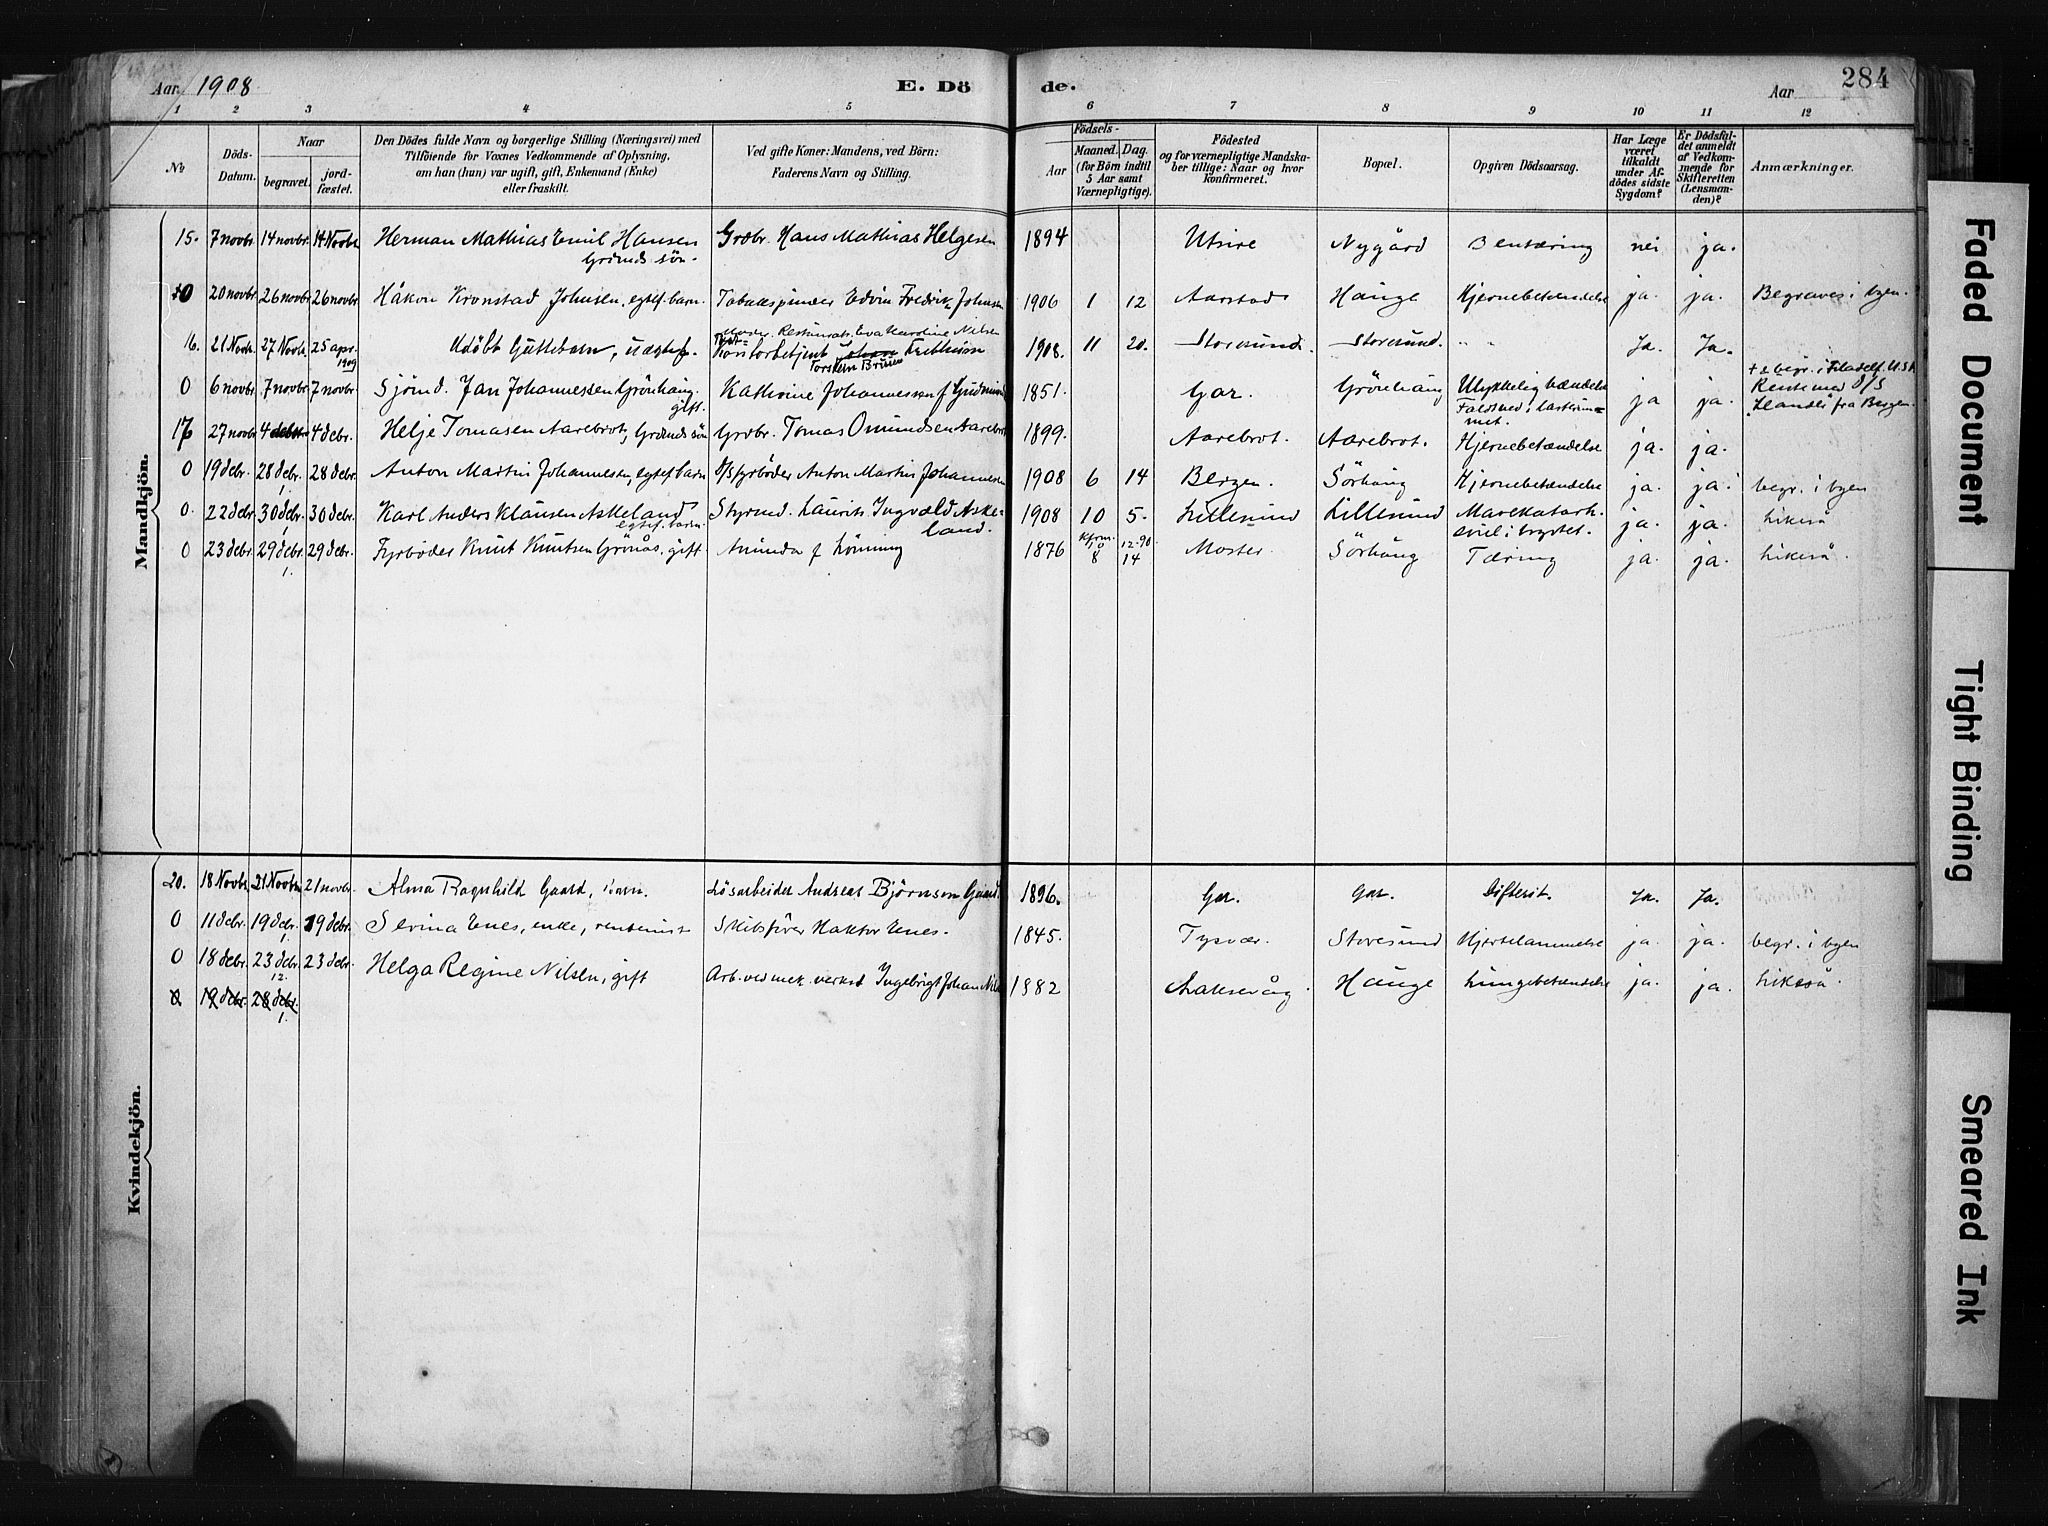 Aar 1908 E. Dö de. Aar 284
1 2 3 4 5 6 7 8 9 10 11 12
No Döds-Datum. Naar begravet. jord-fæstet. Den Dödes fulde Navn og borgerlige Stilling (Næringsvei) med Tilföiende for Voxnes Vedkommende af Oplysning, om han (hun) var ugift, gift, Enkemand (Enke) eller fraskilt. Ved gifte Koner: Mandens, ved Börn: Faderens Navn og Stilling. Födsels- Aar Maaned. Dag. (for Börn indtil 5 Aar samt Værnepligtige). Födested og for værnepligtige Mandskaber tillige: Naar og hvor konfirmeret. Bopæl. Opgiven Dödsaarsag. Har Læge været tilkaldt under Afdödes sidste Sygdom? Er Dödsfaldet anmeldt af Vedkommende for Skifteretten (Lensmanden)? Anmærkninger.
Mandkjön.
15. 7 novbr. 14 novbr. 14 Novbr. Herman Mathias Emil Hansen Grdbr. Hans Mathias Helgesen 1894 Utsire Nygård Bentæring nei ja.
Grdmds sön.
0 20 novbr. 26 novbr. 26 novbr. Håkon Kronstad Johnsen, egtef. barn. Tobakspinder Edvin Fredrik Johnsen 1906 1 12 Aarstad Hauge Hjernebetændelse ja. ja. Begraves i byen.
Moder. Eva Karoline Nilsen
16. 21 Novb. 27 Novb. 25 apr. 1909 Udöbt Guttebarn, uægtef. Torstein Bruun 1908. 11 20. Storesund. Storesund. " " Ja. Ja.
0 6 novbr. 7 novbr. 7 novbr. Sjömd. Jan Johannessen Grönhaug gift. Kathrine Johannessen f. Gudmunds 1851. Gar. Grönhaug Ulykkelig hændelse Faldt ned i lasterummet. ja ja. + & begr. i Filadelf. U.S.A. Reiste med D/S fra Bergen.
17 27 novbr. 4 debr. 4 debr. Helje Tomasen Aarebrot, Grdmds sön Grdbr. Tomas Omundsen Aarebrot 1899. Aarebrot. Aarebrot. Hjernebetændelse ja. ja.
0 19 debr. 28 debr. 1. 28 debr. Anton Martin Johannesen, egtef. barn D/S fyrböder Anton Martin Johannesen 1908 6 14 Bergen. Sörhaug Hjernebetændelse ja. ja. begr. i byen
0. 22 debr. 30 debr. 1. 30 debr. Karl Anders Klausen Askeland egtef. barn. Styrmd. Laurits Ingvald Askeland. 1908 10 5. Lillesund Lillesund ja. ja. Likeså
0 23 debr. 29 debr. 1. 29 debr. Fyrböder Knut Knutsen Grönås, gift. Amunda f. Lönning 1876 8 14 Moster Sörhaug Tæring ja. ja. Likeså.
Kvindekjön.
20. 18 Novbr. 21 Novbr. 21 novbr. Alma Ragnhild Gaard, barn. Lösarbeider Andreas Björnson Gaard. 1896. Gar. Gar. Difterit. Ja. Ja.
0 11 debr. 19 debr. 1. 19 debr. Sevina Enes, enke, rentenist Skibsförer Haktor Enes. 1845. Tysvær. Storesund Hjertelammelse ja. ja. begr. i byen
0 18 debr. 23 debr. 12. 23 debr. Helga Regine Nilsen, gift Arb. ved mek. verkst. Ingebrigt Johan Nils 1882 Laksevåg. Hauge Lungebetændelse ja. ja. Likeså.
0 19 debr. 28 debr. 1.
Faded Document
Tight Binding
Smeared Ink